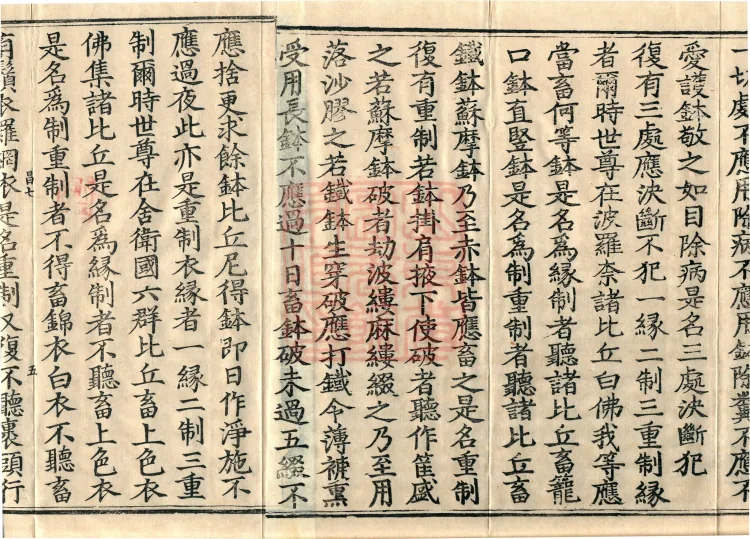 一切處不應用除病不應用鉢除糞不應不
愛護鉢敬之如目除病是名三處決斷犯
復有三處應決斷不犯一緣二制三重制緣
者爾時世尊在波羅奈諸比丘白佛我等應
當畜何等鉢是名為緣制者聽諸比丘畜籠
口鉢直竪鉢是名為制重制者聽諸比丘畜
鐵鉢蘇摩鉢乃至赤鉢皆應畜之是名重制
復有重制若鉢掛肩掖下使破者聽作筐盛
之若蘇摩鉢破者劫波縷麻縷綴之乃至用
落沙膠之若鐵鉢生穿破應打鐵令薄褲熏
受用長鉢不應過十日畜鉢破未過五綴不
應捨更求餘鉢比丘尼得鉢即日作淨施不
應過夜此亦是重制衣緣者一緣二制三重
制爾時世尊在舍衛國六群比丘畜上色衣
佛集諸比丘是名為緣制者不聽畜上色衣
是名為制重制者不得畜錦衣白衣不聽畜
昌七 五
有鬚衣羅網衣是名重制又復不聽裹頭行